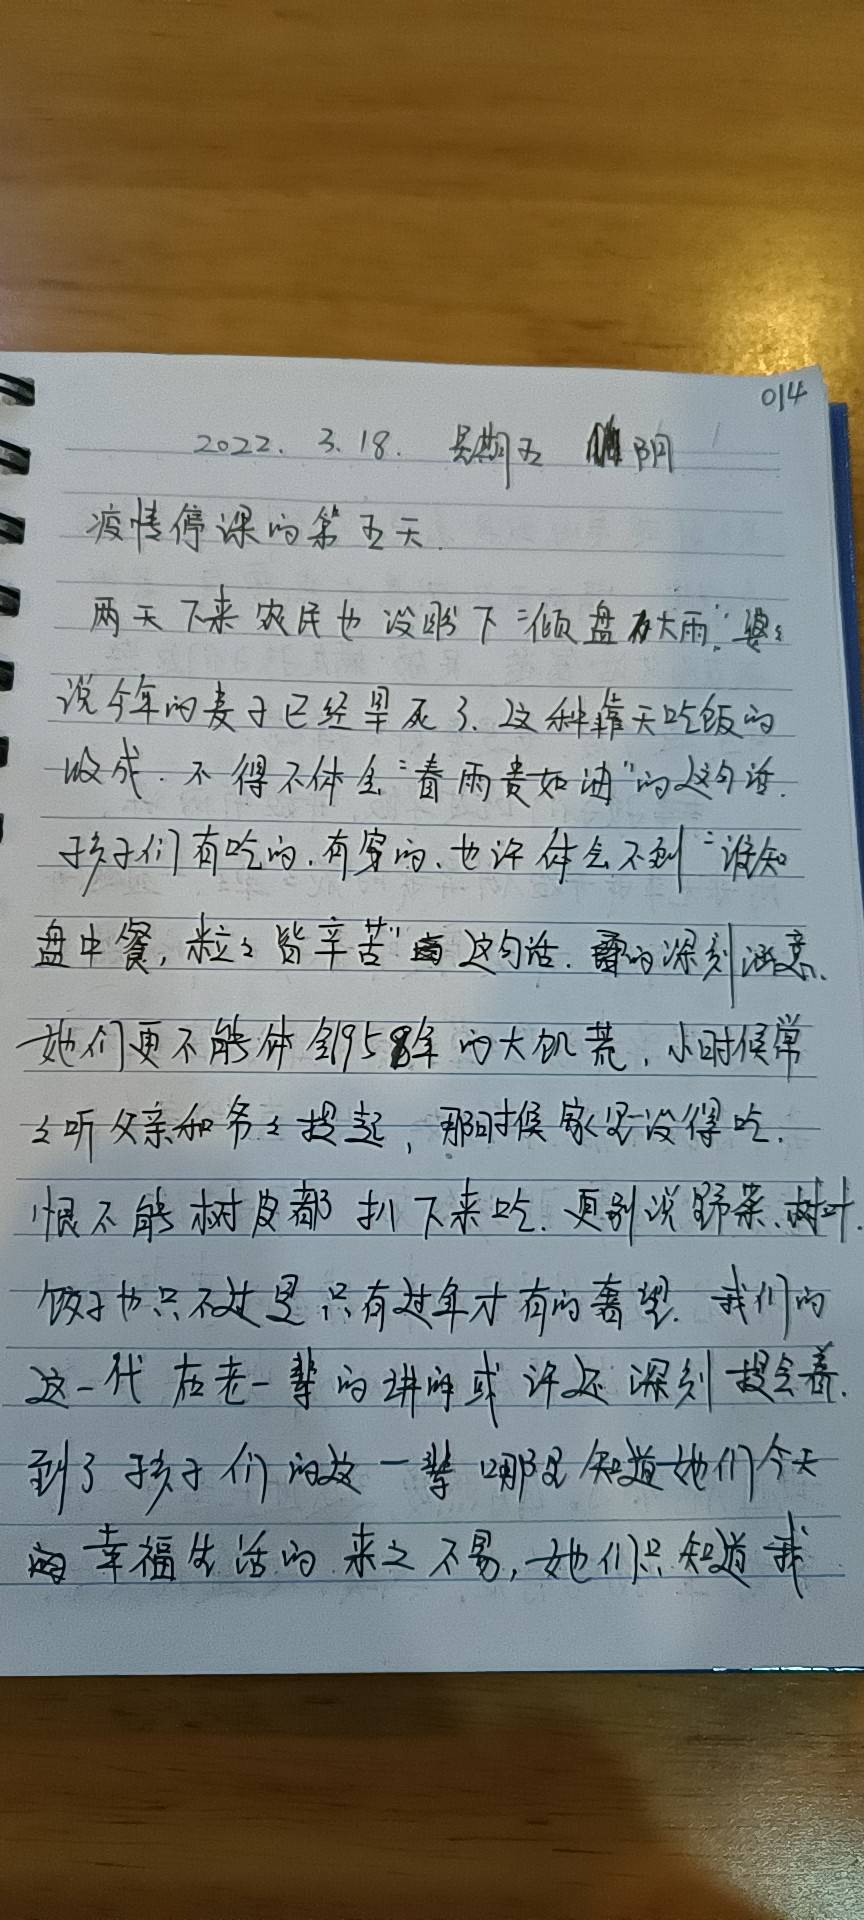 014
2022. 3.18. 星期五 阴
疫情停课的第五天.
两天下来农民也没盼下“倾盘大雨”. 婆々
说今年的麦子已经旱死了. 这种靠天吃饭的
收成. 不得不体会“春雨贵如油”的这句话.
孩子们有吃的. 有穿的. 也许体会不到“谁知
盘中餐, 粒々皆辛苦”这句话. 的深刻涵意.
她们更不能体会1958年的大饥荒, 小时候常
々听父亲和爷々提起, 那时候家里没得吃.
恨不能树皮都扒下来吃. 更别说野菜、树叶.
饺子也只不过是只有过年才有的奢望. 我们的
这一代在老一辈的讲解或许还深刻提会着.
到了孩子们的这一辈哪里知道她们今天
的幸福生活的来之不易, 她们只知道我